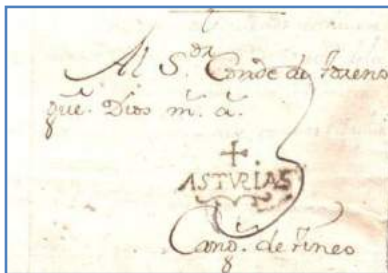 Al S.or Conde de Toreno
gue. Dios m.s a.s
ASTURIAS
Cang.s de Tineo